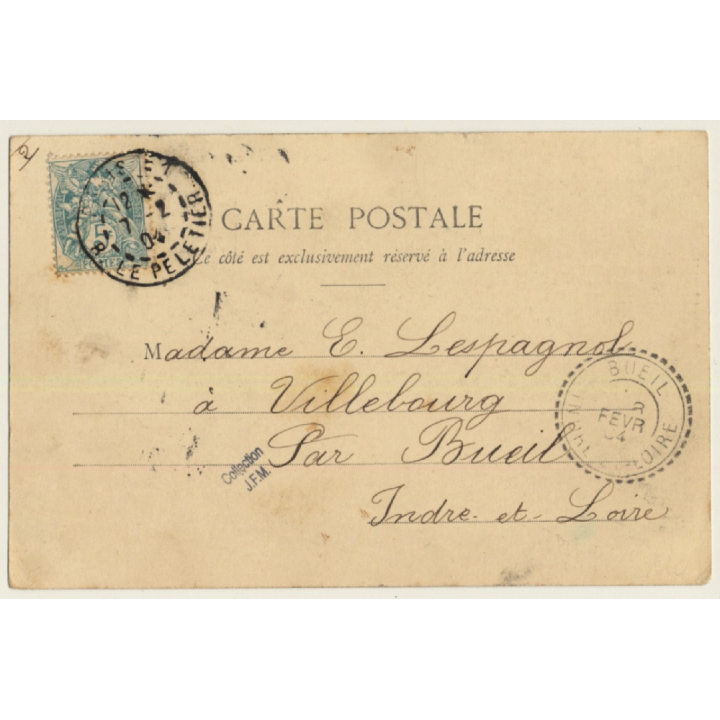 CARTE POSTALE
Ce côté est exclusivement réservé à l'adresse
Madame E. Lespagnol
à Villebourg
Par Bueil
Indre-et-Loire
R. LE PELETIER
7 -2
04
BUEIL
FEVR
04
INDRE-ET-LOIRE
Collection
J.F.M.